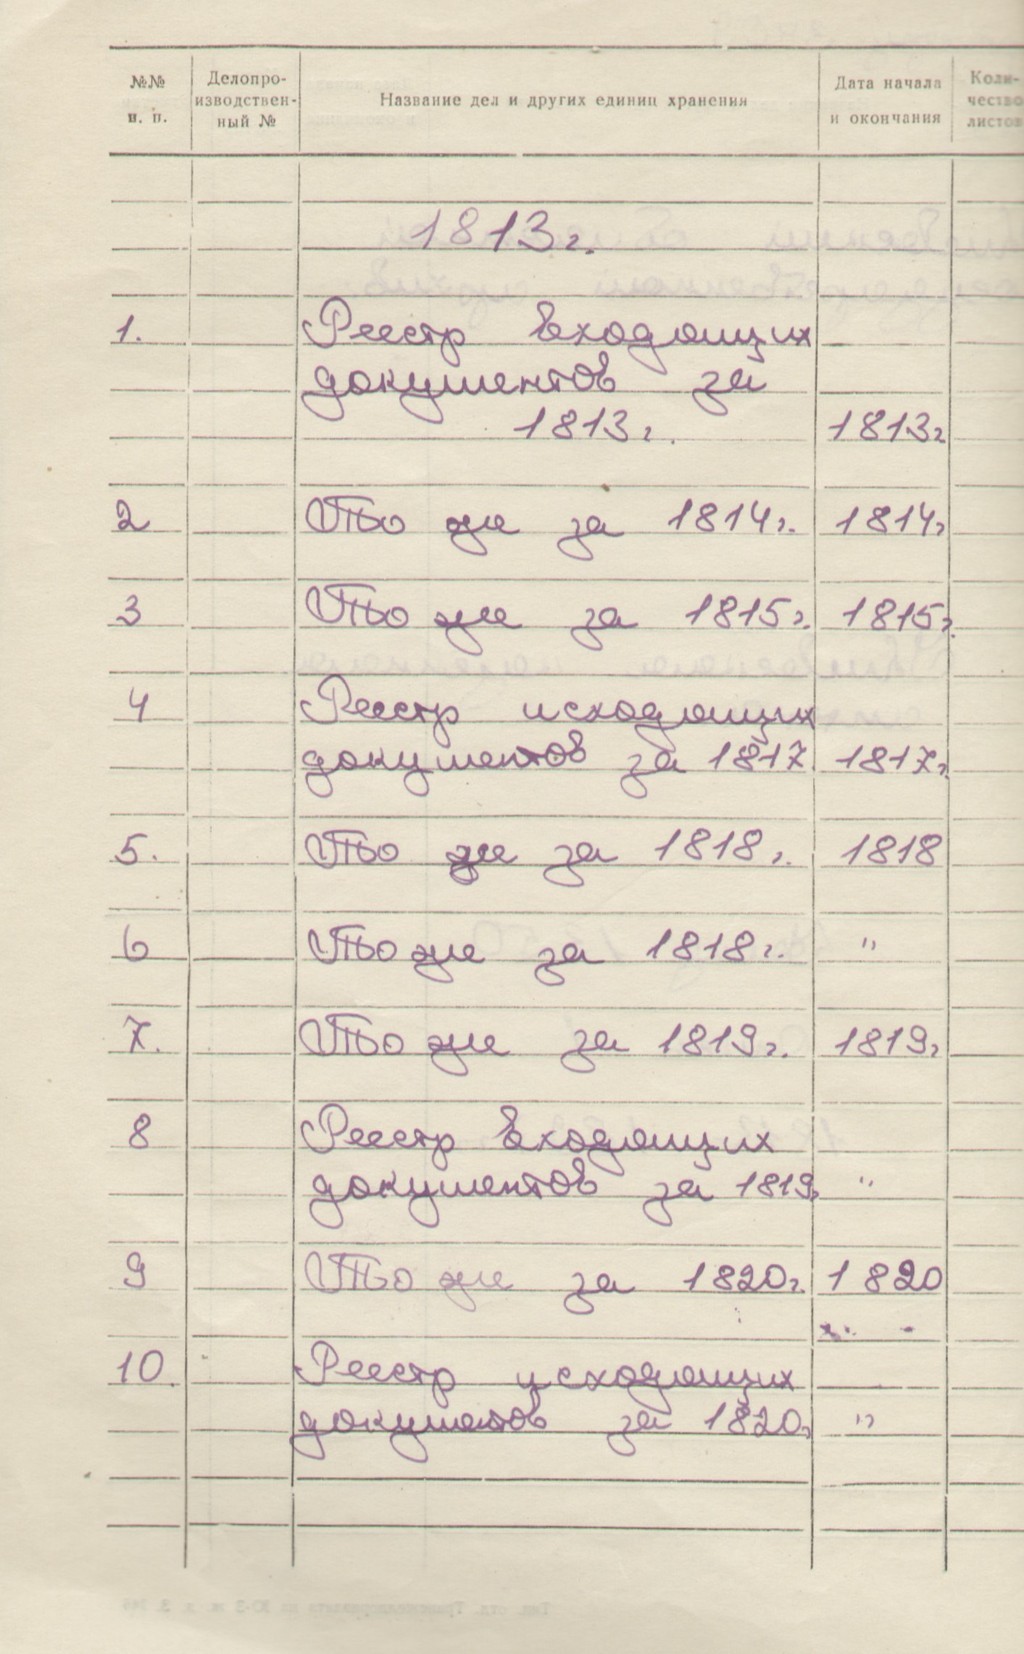 №№ п. п.
Делопроизводственный №
Название дел и других единиц хранения
Дата начала и окончания
Количество листов
1813г.
1. Реестр входящих
документов за
1813г. 1813г
2 То же за 1814г. 1814г
3 То же за 1815г. 1815г.
4 Реестр исходящих
документов за 1817 1817г.
5. То же за 1818г. 1818
6 То же за 1818г. "
7. То же за 1819г. 1819г
8 Реестр входящих
документов за 1819г "
9 То же за 1820г. 1820
10. Реестр исходящих
документов за 1820г "